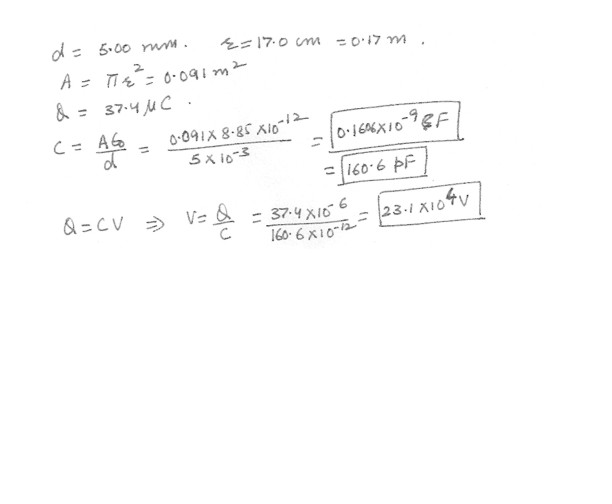 d = 5.00 mm. r = 17.0 cm = 0.17 m.
A = πr² = 0.091 m²
Q = 37.4 μC.
C = Aε₀/d = 0.091 × 8.85 × 10⁻¹² / 5 × 10⁻³ = 0.1606 × 10⁻⁹ F
= 160.6 pF
Q = CV ⇒ V = Q/C = 37.4 × 10⁻⁶ / 160.6 × 10⁻¹² = 23.1 × 10⁴ V